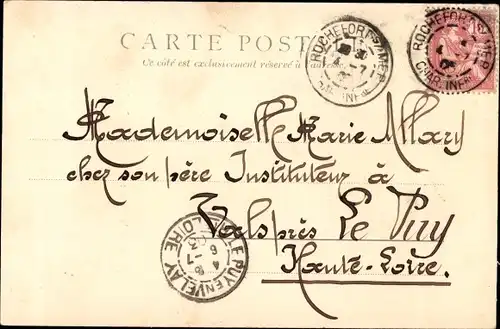 CARTE POSTALE
Ce côté est exclusivement réservé à l'adresse
ROCHEFORT S/MER
CHAR. INFRE
ROCHEFORT S/MER
CHAR. INFRE
Mademoiselle Marie Allary
chez son père Instituteur à
Vals près Le Puy
Haute-Loire.
LE PUY EN VELAY
4-7
03
LOIRE